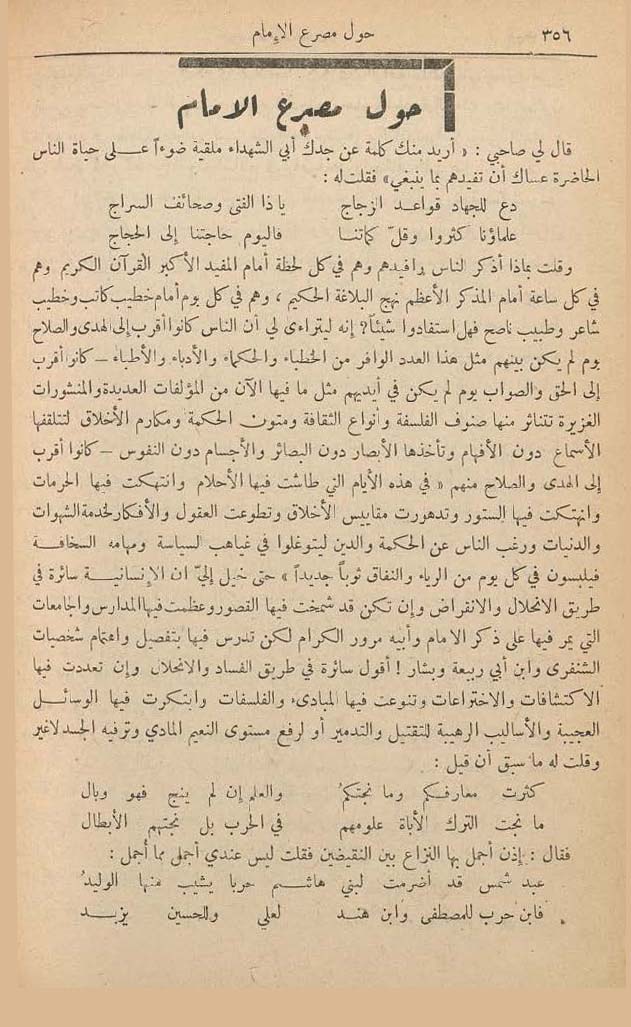 ٣٥٦
حول مصرع الإمام
حول مصرع الامام
قال لي صاحبي : « أريد منك كلمة عن جدك أبي الشهداء ملقية ضوءاً عـــلى حياة الناس
الحاضرة عساك أن تفيدهم بما ينبغي» فقلت له :
دع للجهاد قواعد الزجاج يا ذا الفتى وصحائف السراج
علماؤنا كثروا وقلّ كماتنا فاليوم حاجتنا إلى الحجاج
وقلت بماذا أذكر الناس وافيدهم وهم في كل لحظة أمام المفيد الأكبر القرآن الكريم وهم
في كل ساعة أمام المذكر الأعظم نهج البلاغة الحكيم ، وهم في كل يوم أمام خطيب كاتب وخطيب
شاعر وطبيب ناصح فهل استفادوا شيئاً؟ إنه ليتراءى لي أن الناس كانوا أقرب إلى الهدى والصلاح
يوم لم يكن بينهم مثل هذا العدد الوافر من الخطباء والحكماء والأدباء والأطباء – كانوا أقرب
إلى الحق والصواب يوم لم يكن في أيديهم مثل ما فيها الآن من المؤلفات العديدة والمنشورات
الغزيرة تتناثر منها صنوف الفلسفة وأنواع الثقافة ومتون الحكمة ومكارم الأخلاق لتتلقفها
الأسماع دون الأفهام وتأخذها الأبصار دون البصائر والأجسام دون النفوس – كانوا أقرب
إلى الهدى والصلاح منهم « في هذه الأيام التي طاشت فيها الأحلام وانتهكت فيها الحرمات
وانهتكت فيها الستور وتدهورت مقاييس الأخلاق وتطوعت العقول والأفكار لخدمة الشهوات
والدنيات ورغب الناس عن الحكمة والدين ليتوغلوا في غياهب السياسة ومهامه السخافة
فيلبسون في كل يوم من الرياء والنفاق ثوباً جديداً » حتى خيل إليّ ان الإنسانية سائرة في
طريق الانحلال والانقراض وإن تكن قد شمخت فيها القصور وعظمت فيها المدارس والجامعات
التي يمر فيها على ذكر الامام وأبيه مرور الكرام لكن تدرس فيها بتفصيل واهتمام شخصيات
الشنفرى وابن أبي ربيعة وبشار ! أقول سائرة في طريق الفساد والانحلال وإن تعددت فيها
الاكتشافات والاختراعات وتنوعت فيها المبادىء والفلسفات وابتكرت فيها الوسائـــل
العجيبة والأساليب الرهيبة للتقتيل والتدمير أو لرفع مستوى النعيم المادي وترفيه الجسد لا غير
وقلت له ما سبق أن قيل :
كثرت معارفكم وما نجتكمُ والعلم إن لم ينج فهو وبال
ما نجت الترك الأباة علومهم في الحرب بل نجتهم الأبطال
فقال : إذن أجمل بها النزاع بين النقيضين فقلت ليس عندي أجمل مما أُجمل :
عبد شمس قد أضرمت لبني هاشـــم حربا يشيب منها الوليدُ
فابن حرب للمصطفى وابن هند لعلي وللحسين يزيـــد